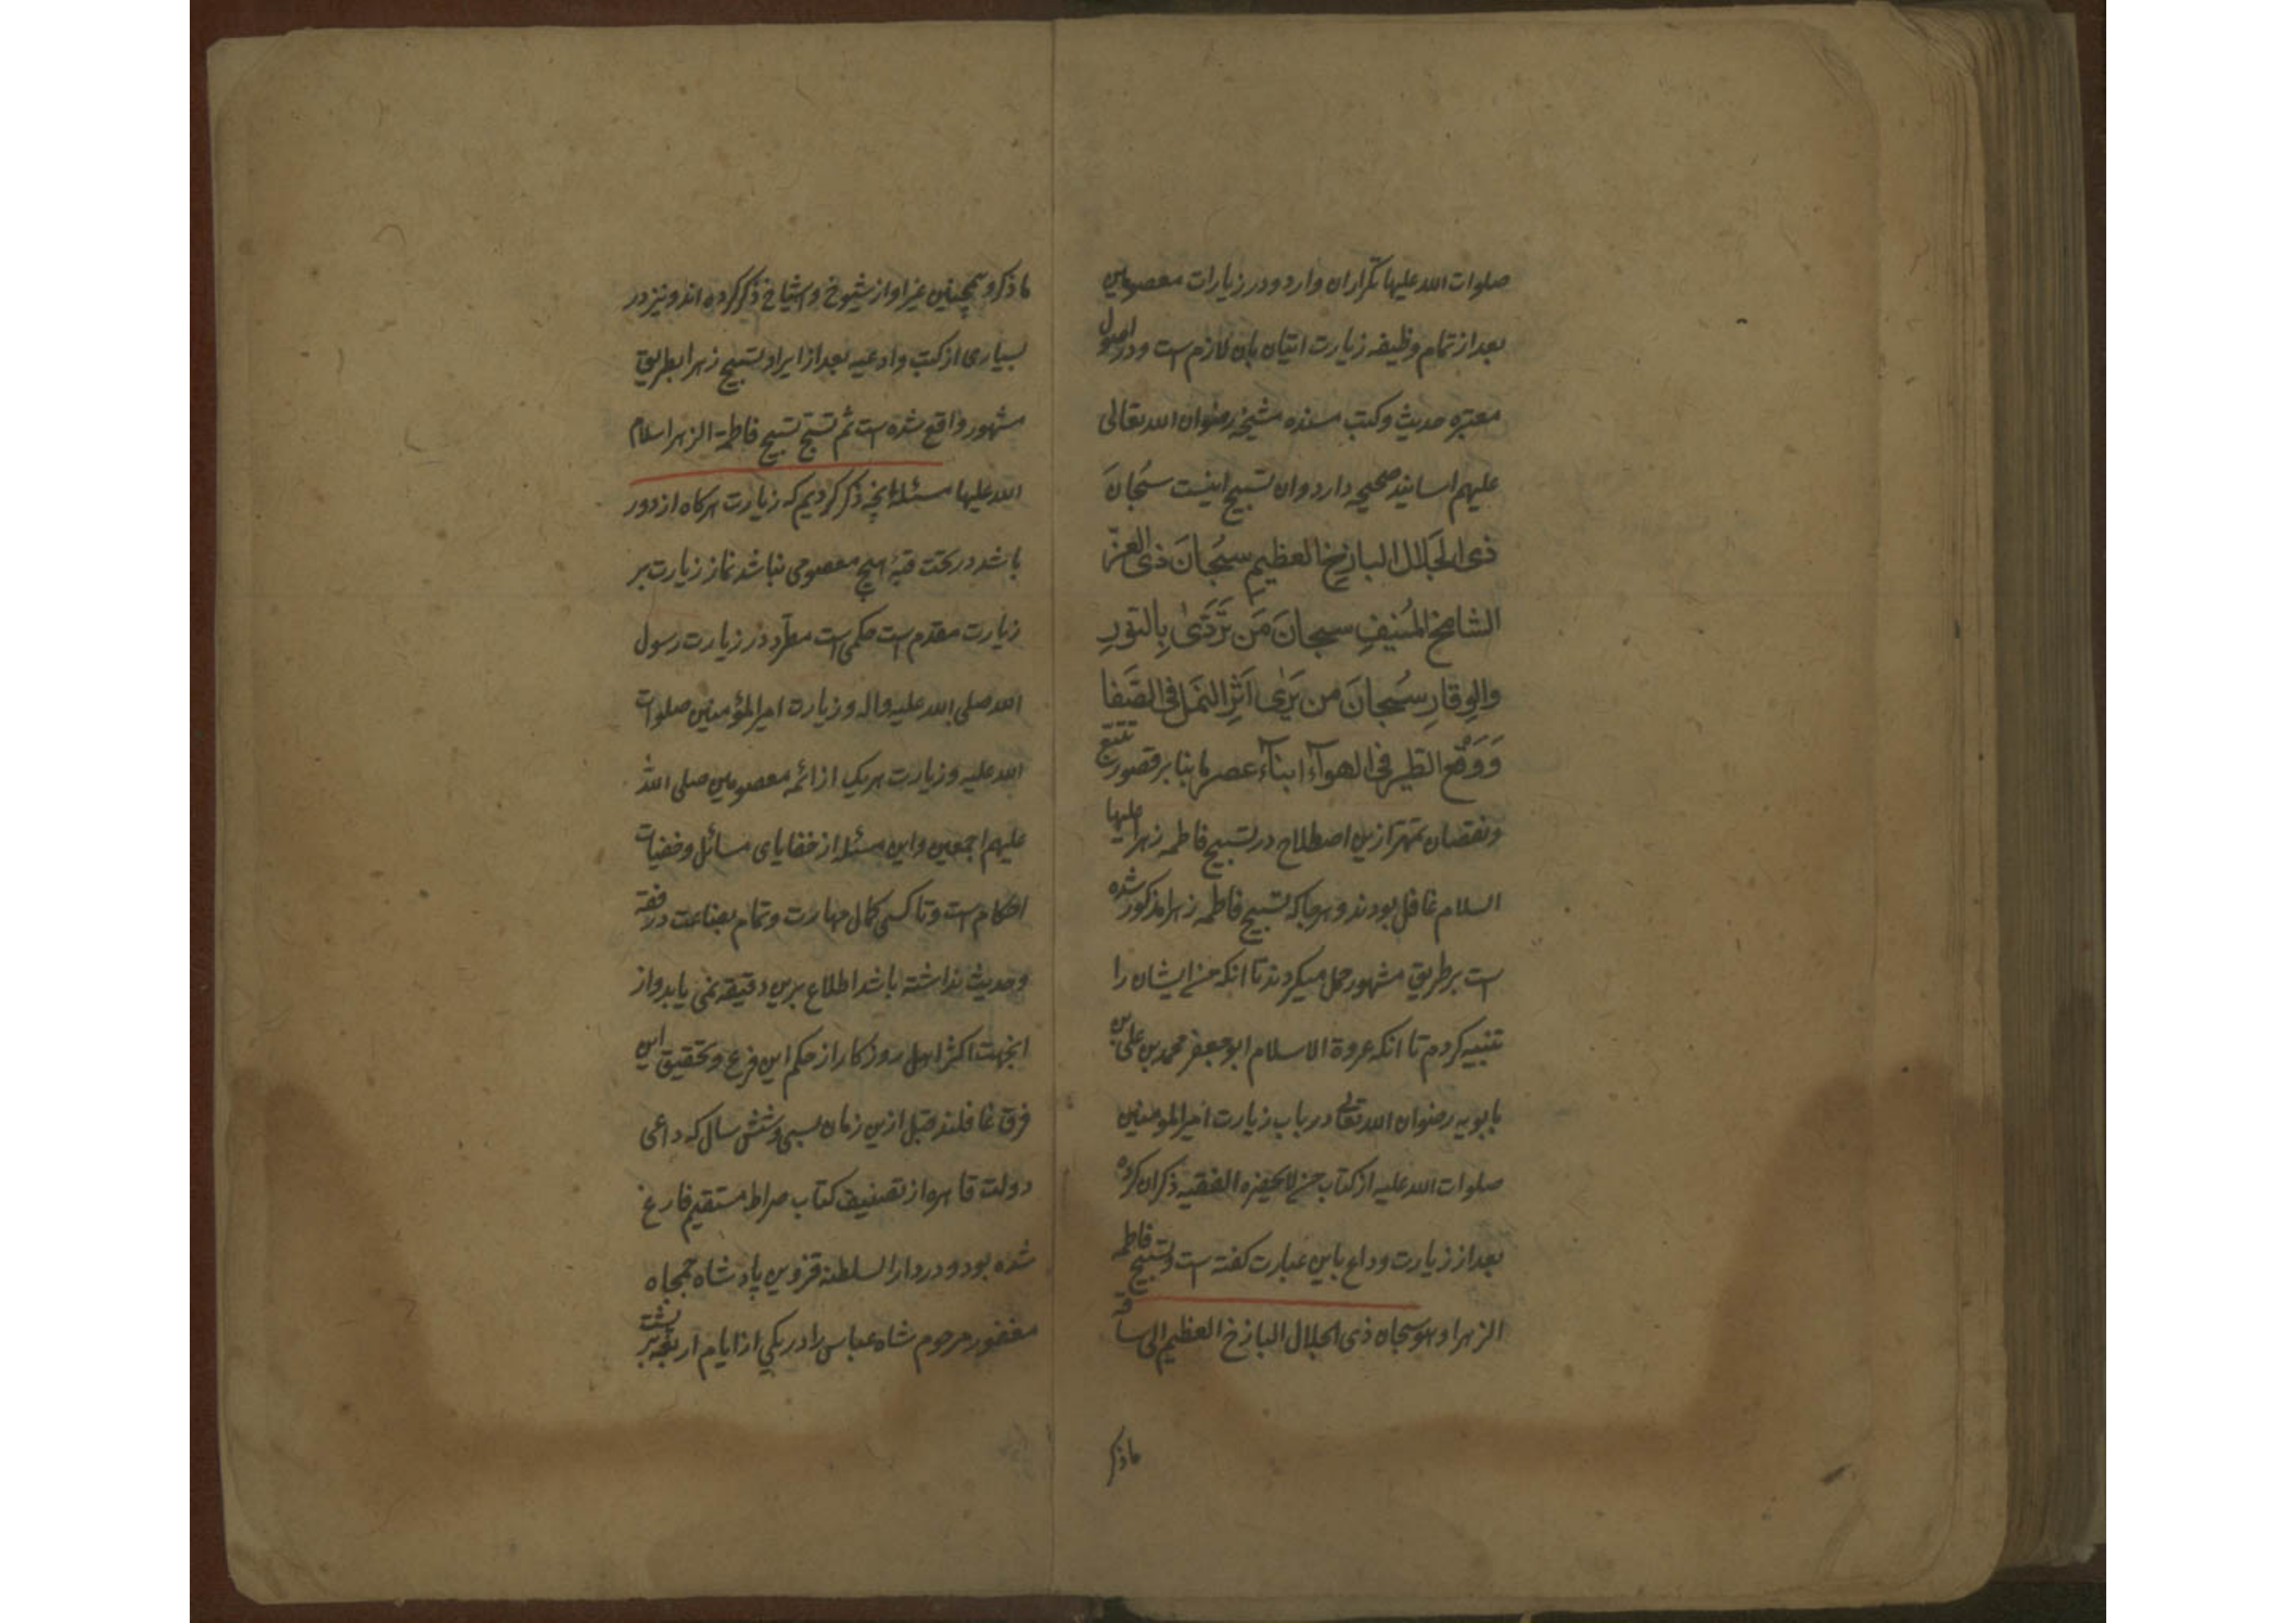 صلوات الله علیها تکرار ان وارد و در زیارات معصومین
بعد از تمام وظیفه زیارت اتیان بان لازم است و در اصول
معتبره حدیث و کتب مسنده مشیخه رضوان الله تعالی
علیهم اسانید صحیحه دارد و ان تسبیح اینست سُبحانَ
ذی الجَلالِ الباذِخِ العظیمِ سُبحانَ ذی العِزِّ
الشامِخِ المُنیفِ سبحانَ مَن تَرَدّیٰ بِالنّورِ
والوِقارِ سُبحانَ من یَرَی اَثَرَ النَملِ فی الصَّفا
وَوَقعَ الطَیرِ فی الهوآءِ ابنآء عصر ما بنا بر قصور تتبع
و نقصان تمهر ازین اصطلاح در تسبیح فاطمه زهرا علیها
السلام غافل بودند و هرجا که تسبیح فاطمه زهرا مذکور شده
است بر طریق مشهور حمل میکردند تا انکه من ایشان را
تنبیه کردم تا انکه عروة الاسلام ابو جعفر محمد بن علی بن
بابویه رضوان الله تعالی در باب زیارت امیرالمومنین
صلوات الله علیه از کتاب من لایحضره الفقیه ذکر ان کرده
بعد از زیارت وداع باین عبارت کفته است و تسبیح فاطمه
الزهرا و هو سبحان ذی الجلال الباذخ العظیم الی ساقة
ماذکر
ماذکر و همچنین غیر او از شیوخ و اشیاخ ذکر کرده اند و نیز در
بسیاری از کتب و ادعیه بعد از ایراد تسبیح زهرا بطریق
مشهور واقع شده است ثم تسبح تسبیح فاطمة الزهرا سلام
الله علیها مسئله انچه ذکر کردیم که زیارت هرکاه از دور
باشد در تحت قبهٔ هیچ معصومی نباشد نماز زیارت بر
زیارت مقدم است حکمی است مطرد در زیارت رسول
الله صلی الله علیه واله و زیارت امیرالمؤمنین صلوات
الله علیه و زیارت هر یک از ائمه معصومین صلی الله
علیهم اجمعین و این مسئله از خفایای مسائل و خفیات
احکام است و تا کسی کمال مهارت و تمام بضاعت در فقه
و حدیث نداشته باشد اطلاع برین دقیقه نمی یابد و از
اینجهت اکثر اهل روزکار از حکم این فرع و تحقیق این
فرق غافلند قبل ازین زمان بسی و شش سال که داعی
دولت قاهره از تصنیف کتاب صراط مستقیم فارغ
شده بود و در دار السلطنه قزوین پادشاه جمجاه
مغفور مرحوم شاه عباس را در یکی از ایام